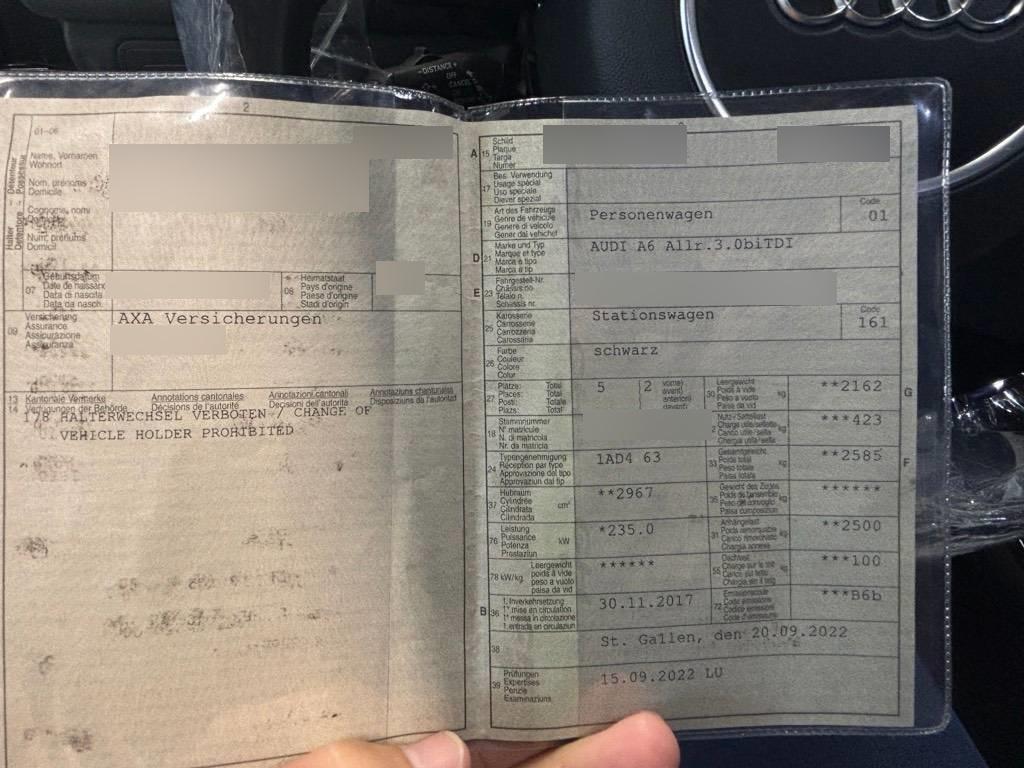 -DISTANCE+
OFF
CANCEL
2
01-06
Halter
Détenteur
Detentore
Possessur
Name, Vornamen
Wohnort
Nom, prénoms
Domicile
Cognome, nomi
Num, prenums
Domicil
07
Geburtsdatum
Date de naissance
Data di nascita
Data da nasch.
08
Heimatstaat
Pays d'origine
Paese d'origine
Stadi d'origin
09
Versicherung
Assurance
Assicurazione
Assicuranza
AXA Versicherungen
13 Kantonale Vermerke Annotations cantonales Annotazioni cantonali Annotaziuns chantunalas
14 Verfügungen der Behörde Décisions de l'autorité Decisioni dell'autorità Disposiziuns da l'autoritad
178 HALTERWECHSEL VERBOTEN / CHANGE OF
VEHICLE HOLDER PROHIBITED
A 15
Schild
Plaque
Targa
Numer
17
Bes. Verwendung
Usage spécial
Uso speciale
Diever spezial
19
Art des Fahrzeugs
Genre de véhicule
Genere di veicolo
Gener dal vehichel
Personenwagen
Code
01
D 21
Marke und Typ
Marque et type
Marca e tipo
Marca e tip
AUDI A6 Allr.3.0biTDI
E 23
Fahrgestell-Nr.
Châssis no
Telaio n.
Schassis nr.
25
Karosserie
Carrosserie
Carrozzeria
Carossaria
Stationswagen
Code
161
26
Farbe
Couleur
Colore
Colur
schwarz
27
Plätze: Total
Places: Total
Posti: Totale
Plazs: Total
5 (2 vorne)
avant)
anteriori)
davant)
G
30
Leergewicht
Poids à vide
Peso a vuoto
Paisa da vid
kg
**2162
18
Stammnummer
N° matricule
N. di matricola
Nr. da matricla
Nutz-/Sattellast
Charge utile/sellette
Carico utile/sella
Chargia utila/sella
kg
***423
24
Typengenehmigung
Réception par type
Approvazione del tipo
Approvaziun dal tip
1AD4 63
F
33
Gesamtgewicht
Poids total
Peso totale
Paisa totala
kg
**2585
37
Hubraum
Cylindrée
Cilindrata
Cilindrada
cm³
**2967
35
Gewicht des Zuges
Poids de l'ensemble
Peso del convoglio
Paisa cumposiziun
kg
******
76
Leistung
Puissance
Potenza
Prestaziun
kW
*235.0
31
Anhängelast
Poids remorquable
Carico rimorchiato
Chargia annexa
kg
**2500
78 kW/kg
Leergewicht
poids à vide
peso a vuoto
paisa da vid
******
55
Dachlast
Charge sur le toit
Carico sul tetto
Chargia sin il tetg
kg
***100
B 36
1. Inverkehrsetzung
1re mise en circulation
1a messa in circolazione
1. entrada en circulaziun
30.11.2017
72
Emissionscode
Code émissions
Codice emissioni
Code d'emissiuns
***B6b
38
St. Gallen, den 20.09.2022
39
Prüfungen
Expertises
Perizie
Examinaziuns
15.09.2022 LU